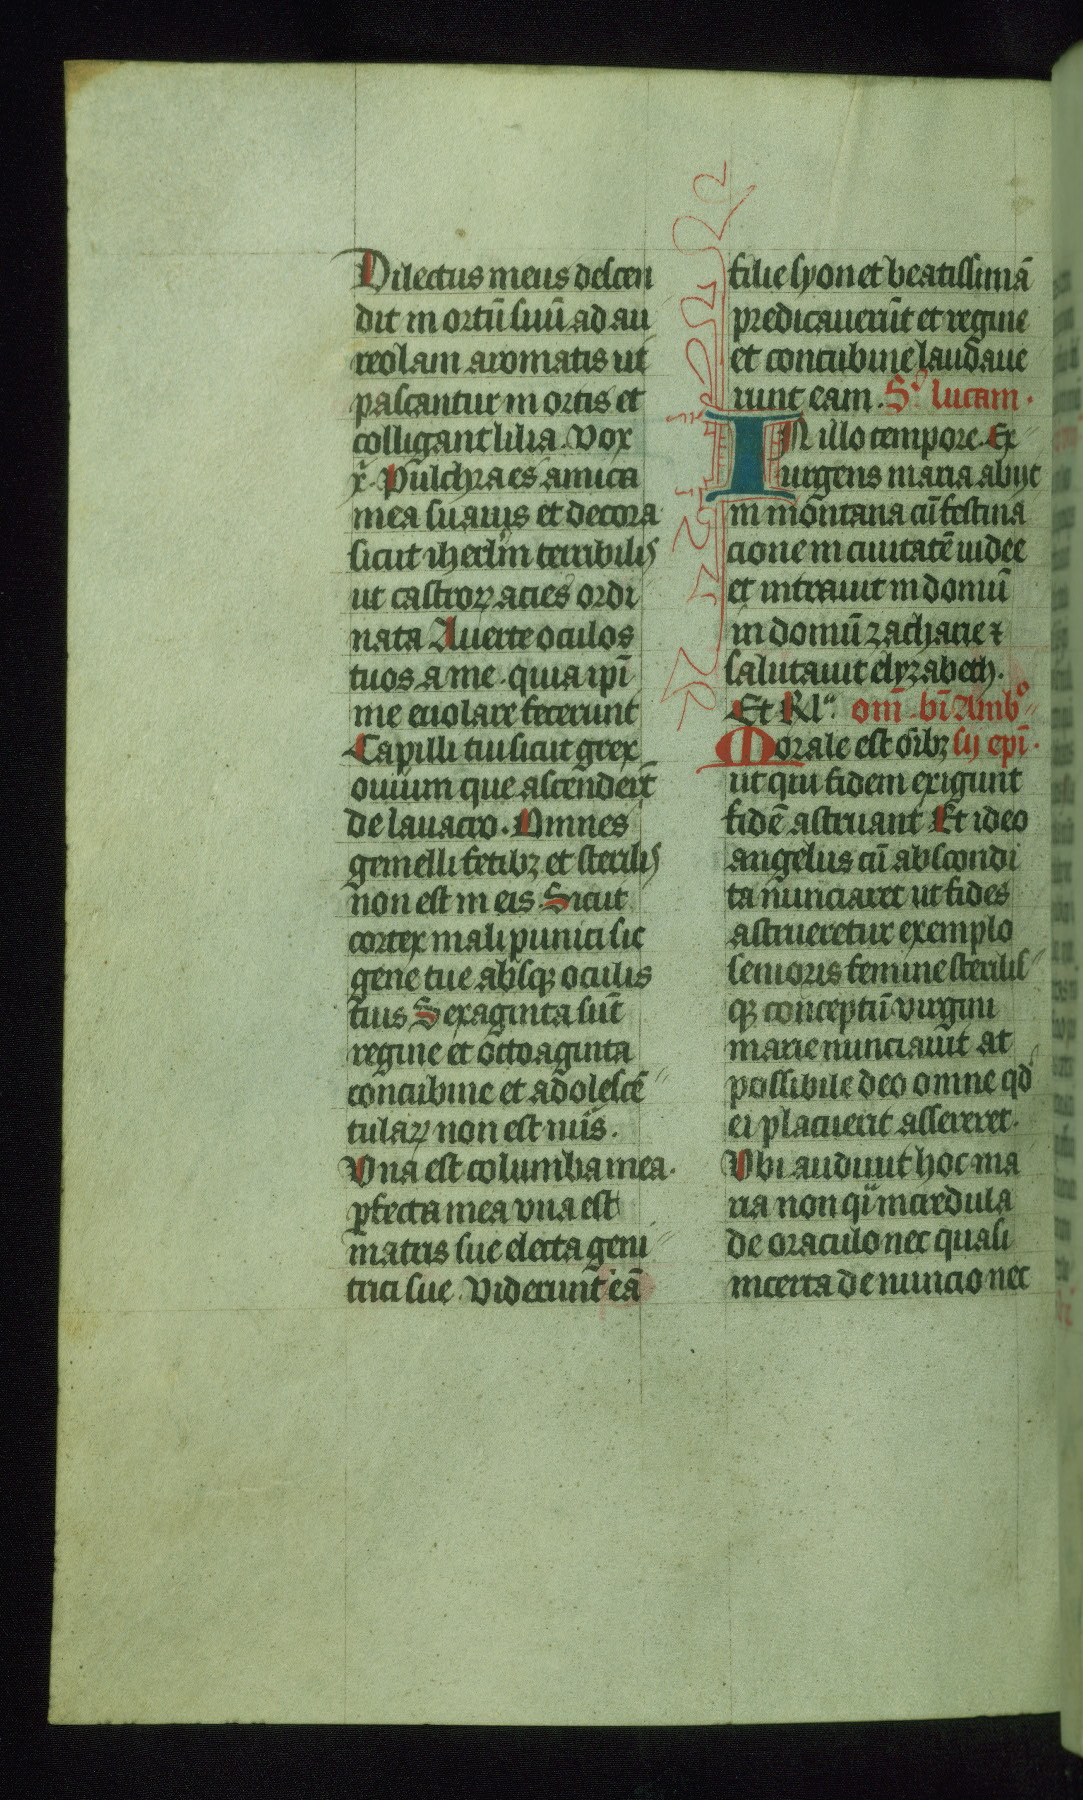 Dilectus meus descen
dit in ortū suū ad au
reolam aromatis ut
pascantur in ortis et
colligant lilia. Vox
x̄. Pulchra es amica
mea suauis et decora
sicut iherl̄m terribilis
ut castroꝝ acies ordi
nata Auerte oculos
tuos a me. quia ip̄i
me euolare fecerunt
Capilli tui sicut grex
ouium que ascenderūt
de lauacro. Omnes
gemelli fetibꝫ et sterilis
non est in eis Sicut
cortex mali punici sic
gene tue absqꝫ oculis
tuis Sexaginta sūt
regine et octoaginta
concubine et adolescē
tulaꝝ non est nūs.
Vna est columba mea.
ꝑfecta mea vna est
matris sue electa geni
trici sue. Viderunt eā
filie syon et beatissimā
predicauerūt et regine
et concubine laudaue
runt eam. Sᵐ lucam.
IN illo tempore. Ex
urgens maria abijt
in montana cū festina
cione in ciuitatē iudee
et intrauit in domū
in domū zacharie ⁊
salutauit elyzabeth.
Et Rlᵃ. om̄. bī Ambᵒ
Morale est oībꝫ sij epī.
ut qui fidem exigunt
fidē astruant Et ideo
angelus cū abscondi
ta nunciaret ut fides
astrueretur exemplo
senioris femine sterilis
qꝫ conceptū virgini
marie nunciauit at
possibile deo omne qd
ei placuerit assereret.
Vbi audiuit hoc ma
ria non q̄i incredula
de oraculo nec quasi
incerta de nuncio nec